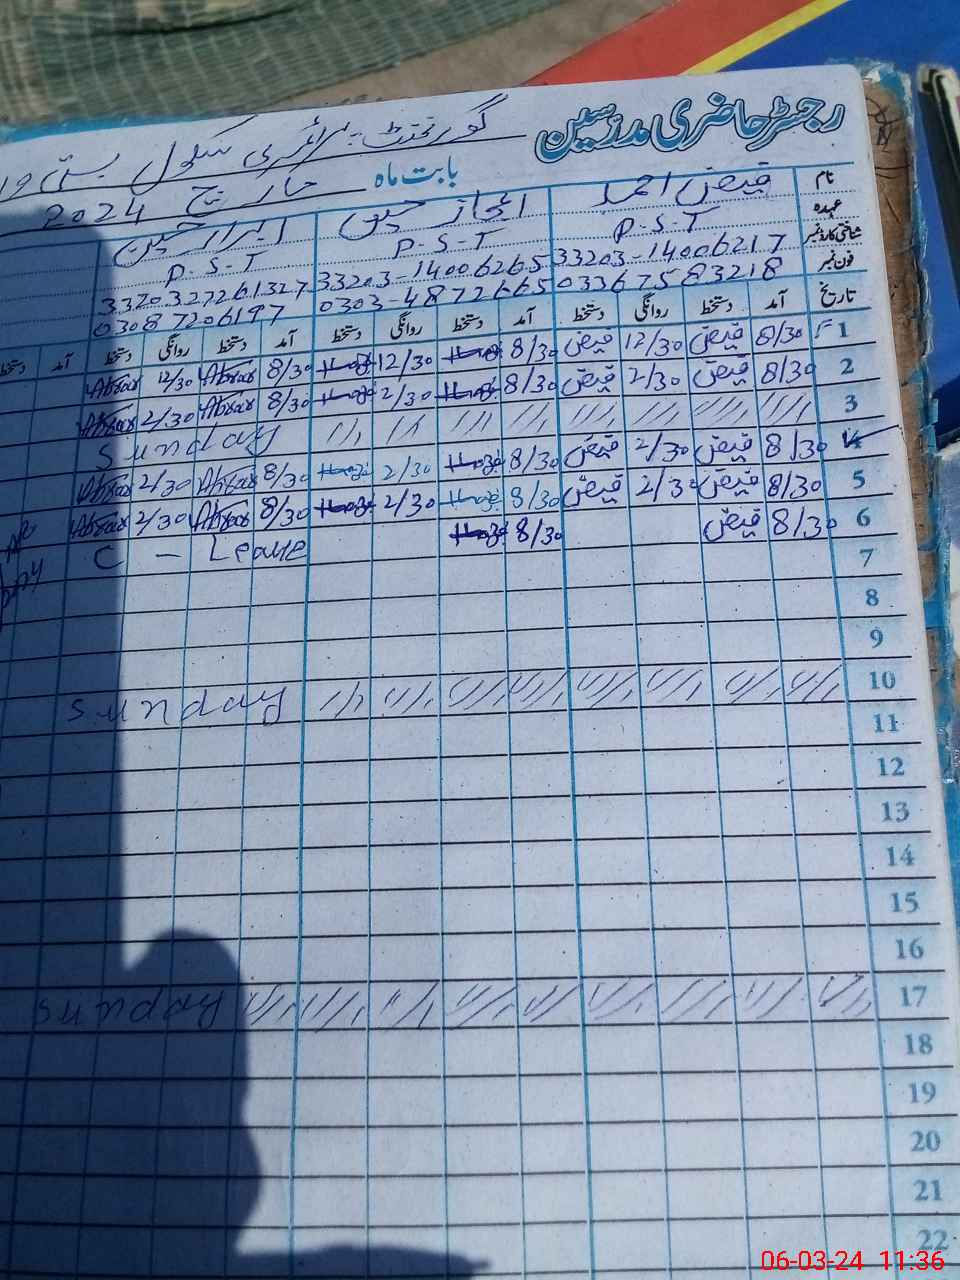 رجسٹر حاضری مدرسین
گورنمنٹ پرائمری سکول بستی
بابت ماہ مارچ 2024
نام فیض احمد اعجاز حسین ابرار حسین
عہدہ P.S.T P.S.T P.S.T
شناختی کارڈ نمبر 33203-14006217 33203-14006265 3320327261327
فون نمبر 03367583218 0303-4872665 03087206197
تاریخ آمد دستخط روانگی دستخط آمد دستخط روانگی دستخط آمد دستخط روانگی دستخط آمد دستخط
1 8/30 فیض 12/30 فیض 8/30 12/30 8/30 Abrar 12/30 Abrar
2 8/30 فیض 2/30 فیض 8/30 2/30 8/30 Abrar 2/30 Abrar
3 Sunday
4 8/30 فیض 2/30 فیض 8/30 2/30 8/30 Abrar 2/30 Abrar
5 8/30 فیض 2/30 فیض 8/30 2/30 8/30 Abrar 2/30 Abrar
6 8/30 فیض 8/30 C - Leave
7
8
9
10 Sunday
11
12
13
14
15
16
17 Sunday
18
19
20
21
22
06-03-24 11:36